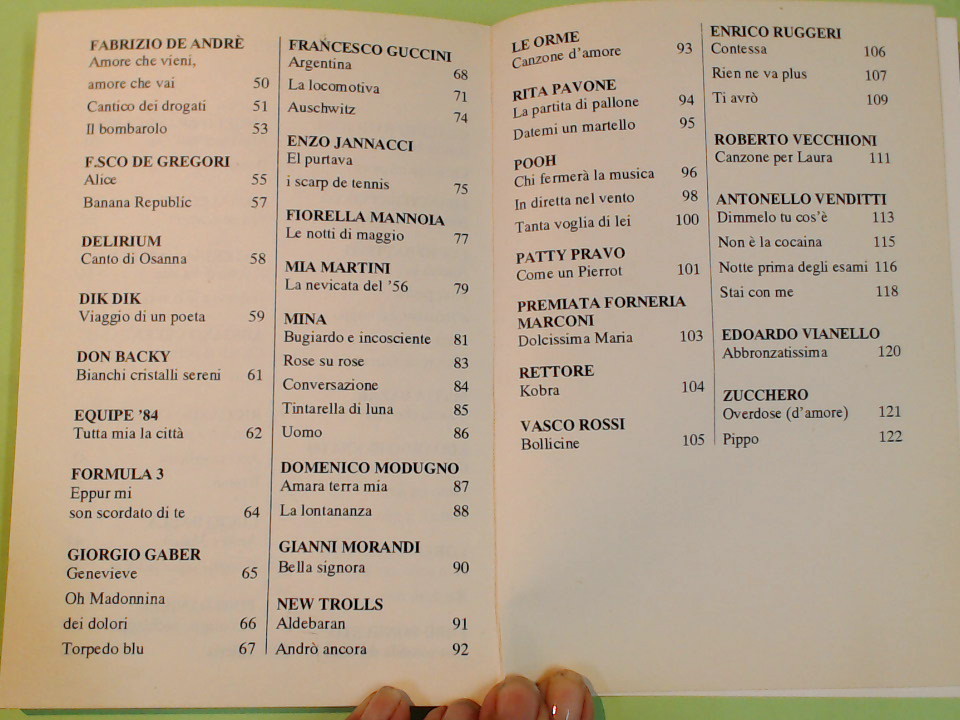 FABRIZIO DE ANDRÈ
Amore che vieni,
amore che vai 50
Cantico dei drogati 51
Il bombarolo 53
F.SCO DE GREGORI
Alice 55
Banana Republic 57
DELIRIUM
Canto di Osanna 58
DIK DIK
Viaggio di un poeta 59
DON BACKY
Bianchi cristalli sereni 61
EQUIPE '84
Tutta mia la città 62
FORMULA 3
Eppur mi
son scordato di te 64
GIORGIO GABER
Genevieve 65
Oh Madonnina
dei dolori 66
Torpedo blu 67
FRANCESCO GUCCINI
Argentina 68
La locomotiva 71
Auschwitz 74
ENZO JANNACCI
El purtava
i scarp de tennis 75
FIORELLA MANNOIA
Le notti di maggio 77
MIA MARTINI
La nevicata del '56 79
MINA
Bugiardo e incosciente 81
Rose su rose 83
Conversazione 84
Tintarella di luna 85
Uomo 86
DOMENICO MODUGNO
Amara terra mia 87
La lontananza 88
GIANNI MORANDI
Bella signora 90
NEW TROLLS
Aldebaran 91
Andrò ancora 92
LE ORME
Canzone d'amore 93
RITA PAVONE
La partita di pallone 94
Datemi un martello 95
POOH
Chi fermerà la musica 96
In diretta nel vento 98
Tanta voglia di lei 100
PATTY PRAVO
Come un Pierrot 101
PREMIATA FORNERIA
MARCONI
Dolcissima Maria 103
RETTORE
Kobra 104
VASCO ROSSI
Bollicine 105
ENRICO RUGGERI
Contessa 106
Rien ne va plus 107
Ti avrò 109
ROBERTO VECCHIONI
Canzone per Laura 111
ANTONELLO VENDITTI
Dimmelo tu cos'è 113
Non è la cocaina 115
Notte prima degli esami 116
Stai con me 118
EDOARDO VIANELLO
Abbronzatissima 120
ZUCCHERO
Overdose (d'amore) 121
Pippo 122